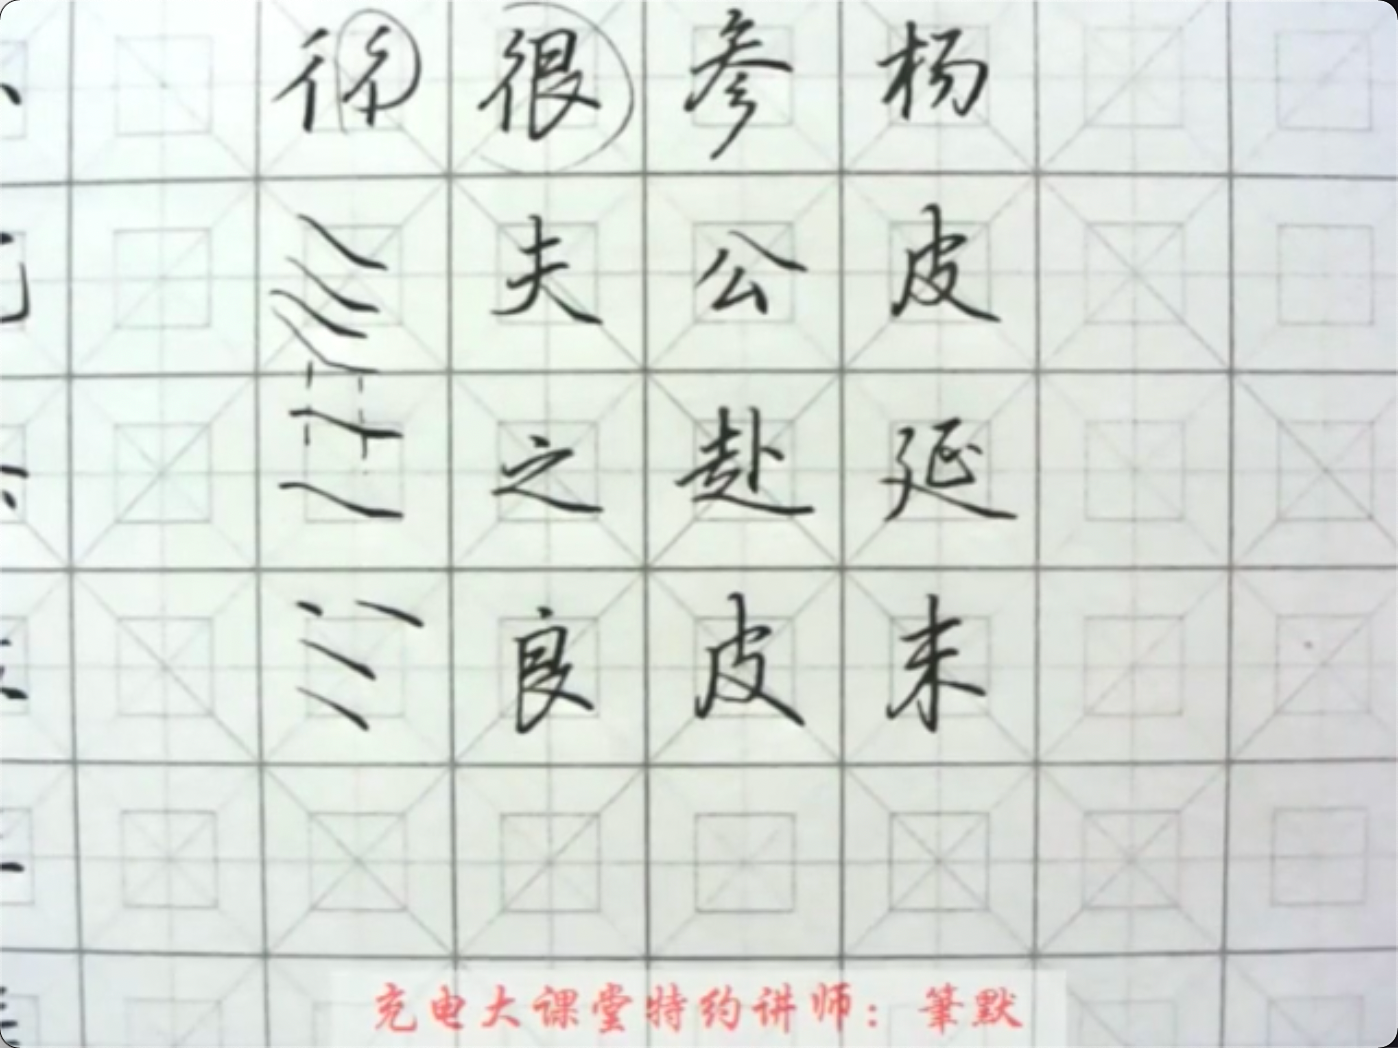 彳彳很参杨
夫公皮
之赴延
良皮末
充电大课堂特约讲师：筆默